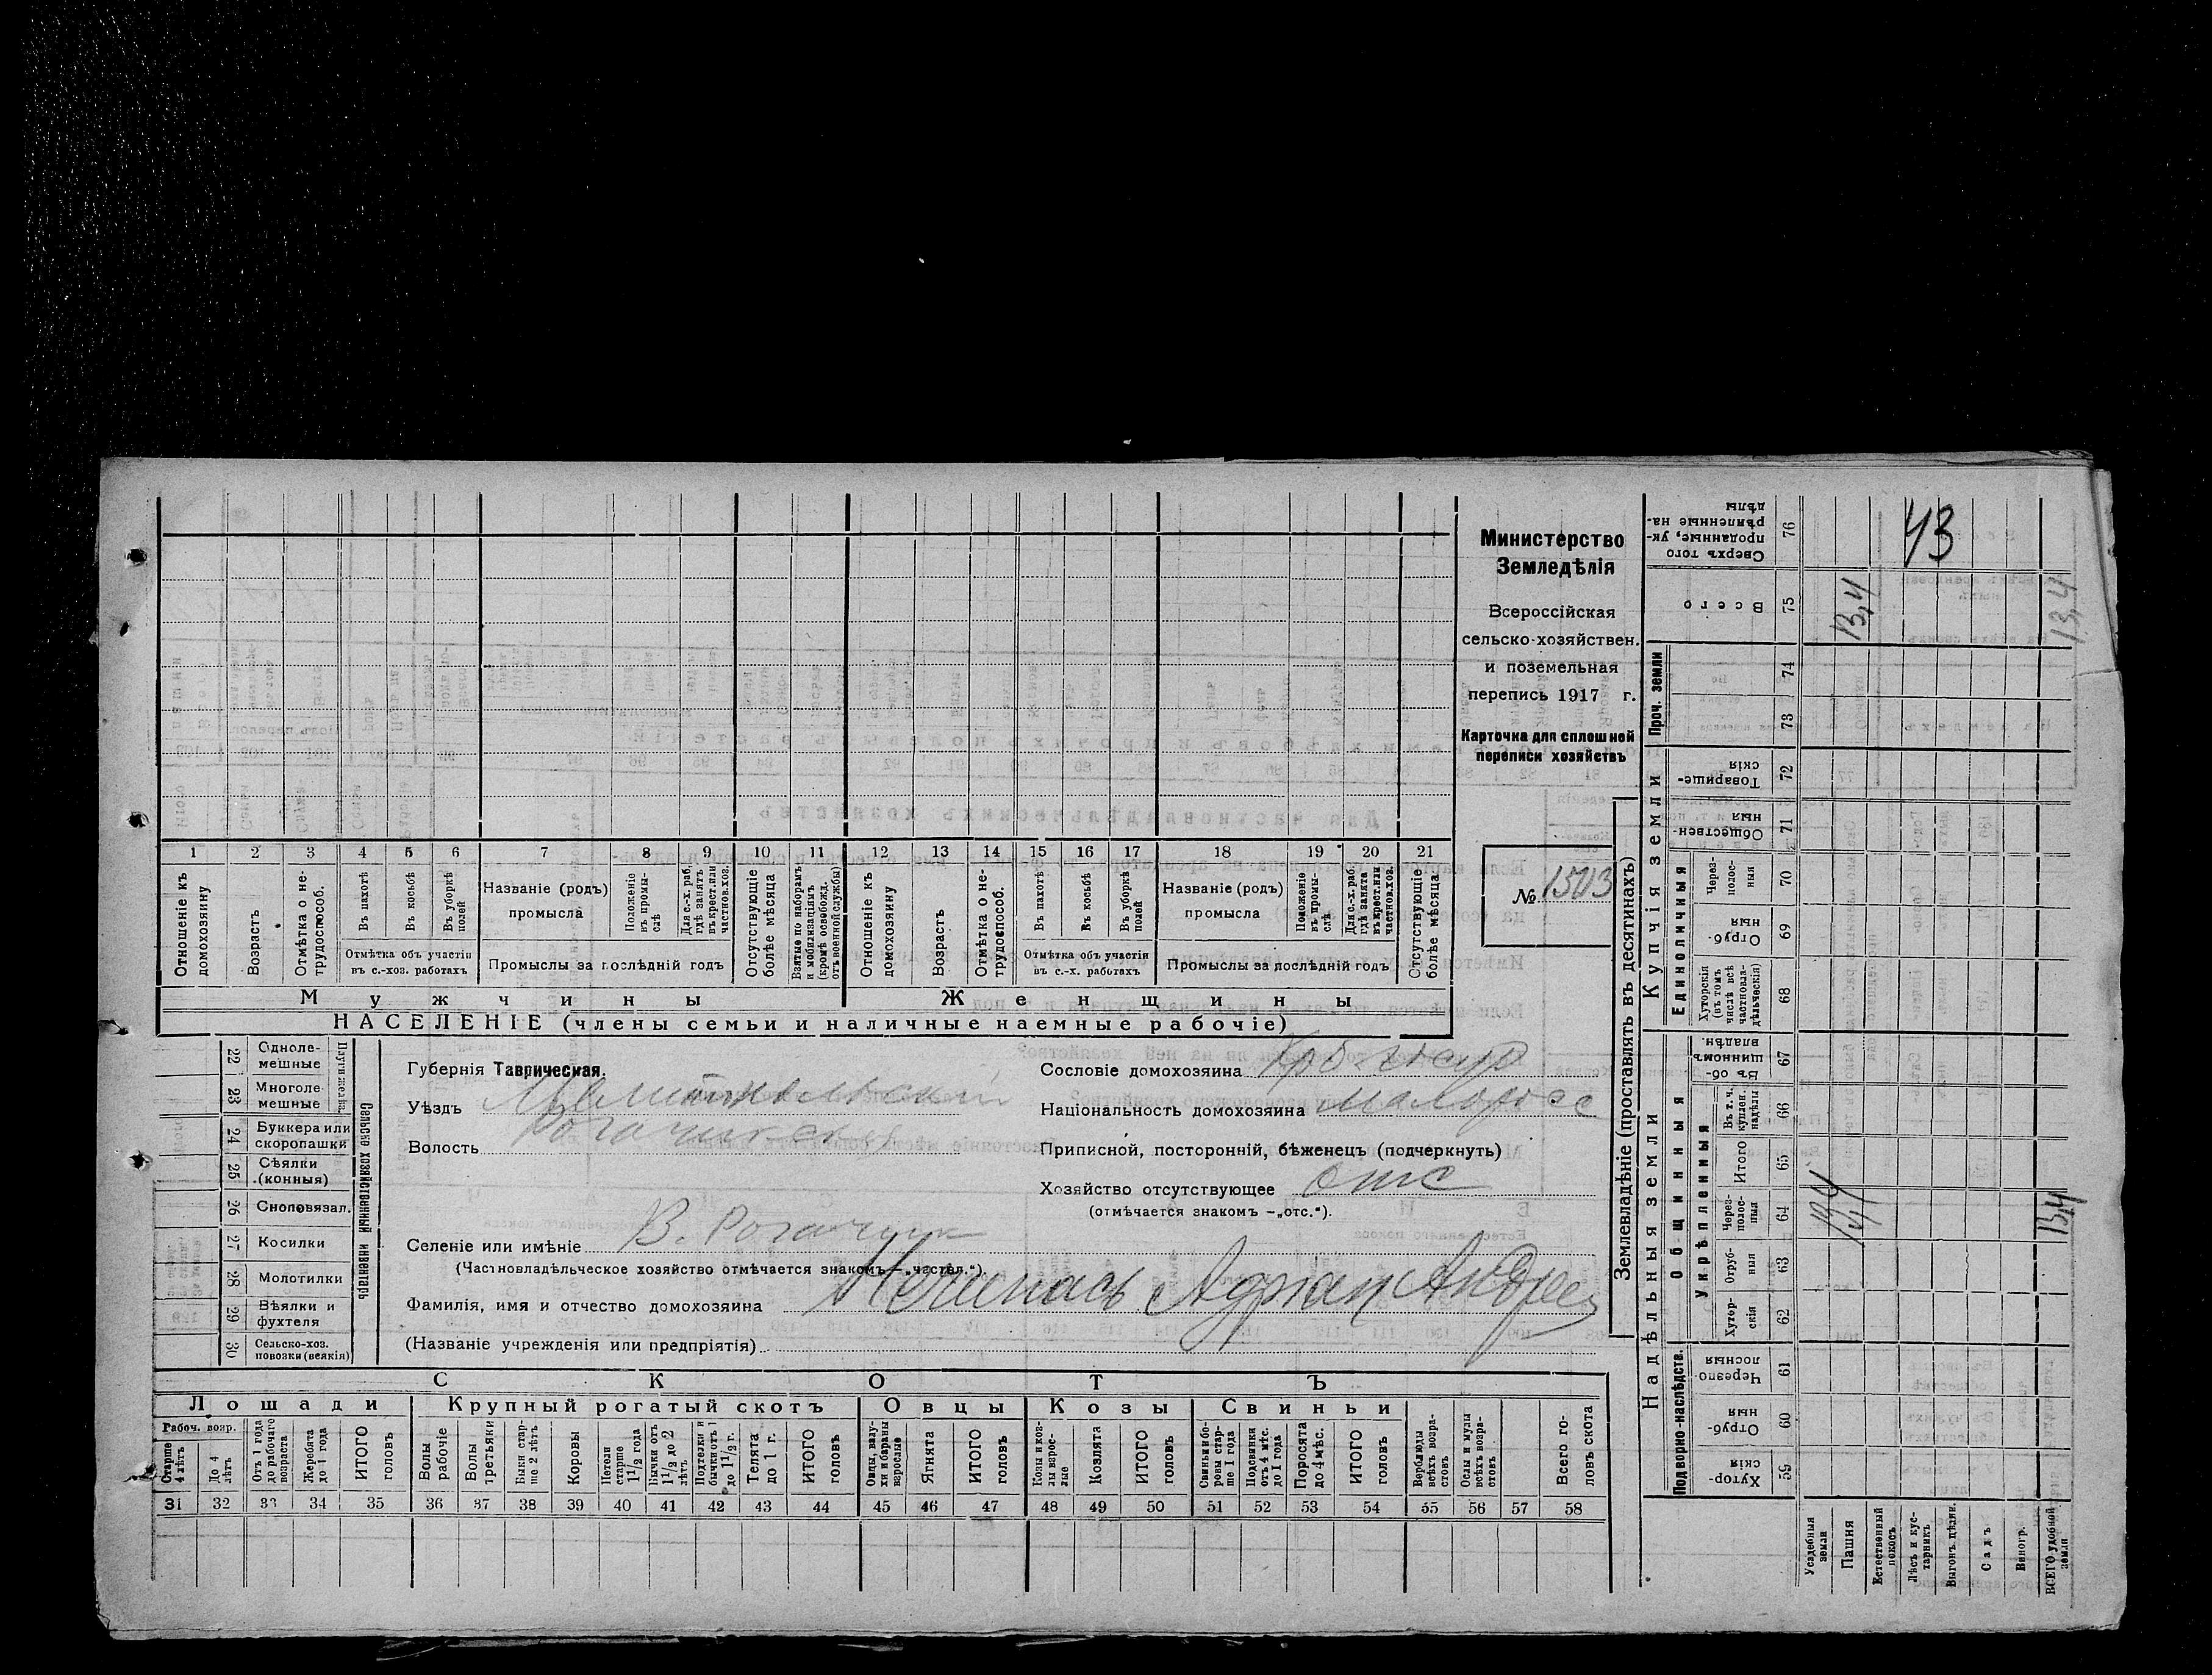 Министерство
Земледѣлія
Всероссійская
сельско-хозяйствен.
и поземельная
перепись 1917 г.
Карточка для сплошной
переписи хозяйствъ
№ 1503
1 2 3 4 5 6 7 8 9 10 11 12 13 14 15 16 17 18 19 20 21
Отношеніе къ домохозяину
Возрастъ
Отмѣтка о не-трудоспособ.
Въ пахотѣ
Въ косьбѣ
Въ уборкѣ полей
Отмѣтка объ участіи
въ с.-хоз. работахъ
Названіе (родъ)
промысла
Положеніе въ промы-слѣ
Для с.-х. раб. гдѣ занятъ въ крест. или частнов. хоз.
Промыслы за послѣдній годъ
Отсутствующіе болѣе мѣсяца
Взятые по наборамъ и мобилизаціямъ (кромѣ освобожд. отъ военной службы)
Отношеніе къ домохозяину
Возрастъ
Отмѣтка о не-трудоспособ.
Въ пахотѣ
Въ косьбѣ
Въ уборкѣ полей
Отмѣтка объ участіи
въ с.-х. работахъ
Названіе (родъ)
промысла
Положеніе въ промы-слѣ
Для с.-х. раб. гдѣ занята въ крест. или частнов. хоз.
Промыслы за послѣдній годъ
Отсутствующіе болѣе мѣсяца
Мужчины Женщины
НАСЕЛЕНІЕ (члены семьи и наличные наемные рабочіе)
Сельско хозяйственный инвентарь
22 Одноле-мешные
23 Многоле мешные
24 Буккера или скоропашки
25 Сѣялки (конныя)
26 Сноповязал.
27 Косилки
28 Молотилки
29 Вѣялки и фухтеля
30 Сельско-хоз. повозки (всякія)
Губернія Таврическая.
Уѣздъ Мелитопольскій
Волость Рогачикская
Селеніе или имѣніе В. Рогачик
(Частновладѣльческое хозяйство отмѣчается знакомъ —„частвл.“).
Фамилія, имя и отчество домохозяина Адриан Андрее
(Названіе учрежденія или предпріятія)
Сословіе домохозяина
Національность домохозяина малоросс
Приписной, посторонній, бѣженецъ (подчеркнуть)
Хозяйство отсутствующее отс
(отмѣчается знакомъ —„отс.“).
СКОТЪ
Лошади Крупный рогатый скотъ Овцы Козы Свиньи
Рабоч. возр.
Старше 4 лѣтъ
До 4 лѣтъ
Отъ 1 года до рабочаго возраста
Жеребята до 1 года
ИТОГО головъ
Волы рабочіе
Волы третьяки
Быки стар-ше 2 лѣтъ
Коровы
Нетели старше 1½ года
Бычки отъ 1½ до 2 лѣтъ
Подтелки и бычки отъ 1 до 1½ г.
Телята до 1 г.
ИТОГО головъ
Овцы, валу-хи и бараны взрослые
Ягнята
ИТОГО головъ
Козы и коз-лы взрос-лые
Козлята
ИТОГО головъ
Свиньи и бо-ровы стар-ше 1 года
Подсвинки отъ 4 мѣс. до 1 года
Поросята до 4 мѣс.
ИТОГО головъ
Верблюды всѣхъ возра-стовъ
Ослы и мулы всѣхъ возра-стовъ
Всего го-ловъ скота
31 32 33 34 35 36 37 38 39 40 41 42 43 44 45 46 47 48 49 50 51 52 53 54 55 56 57 58
Землевладѣніе (проставлять въ десятинахъ)
Надѣльныя земли
Купчія земли
Проч. земли
Подворно-наслѣдств.
Общинныя
Укрѣпленныя
Единоличныя
Хутор-скія 59
Отруб-ныя 60
Черезпо-лосныя 61
Хутор-скія 62
Отруб-ныя 63
Через-полос-ныя 64
Итого 65
Въ т. ч. куплен. надѣлы 66
Въ об-щинномъ владѣн. 67
Хуторскія (въ томъ числѣ всѣ частновла-дѣльческія) 68
Отруб-ныя 69
Через-полос-ныя 70
Обществен-ныя 71
Товарище-скія 72
73
74
Всего 75
Сверхъ того проданные, ук-рѣпленные на-дѣлы 76
43
13,4
13,4
13,4
13,4
Усадебныя земли
Пашня
Естественный покосъ
Лѣсъ и кус-тарникъ
Выгонъ, цѣлин.
Садъ
Виногр.
ВСЕГО удобной земли